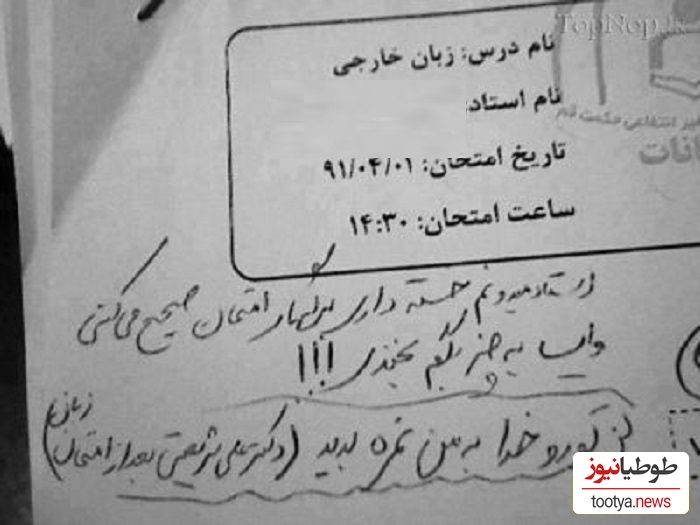 TopNop.ir
نام درس: زبان خارجی
نام استاد:
غیر انتفاعی حکمت قم
تاریخ امتحان: ۹۱/۰۴/۰۱
ساعت امتحان: ۱۴:۳۰
استاد میدونم خسته داری امتحان صحیح می‌کنی
وایسا یه چیز بگم بخندی !!!
تو رو خدا به من نمره بدید (دکتر علی شریعتی بعد از امتحان زبان)
طوطیانیوز
tootya.news